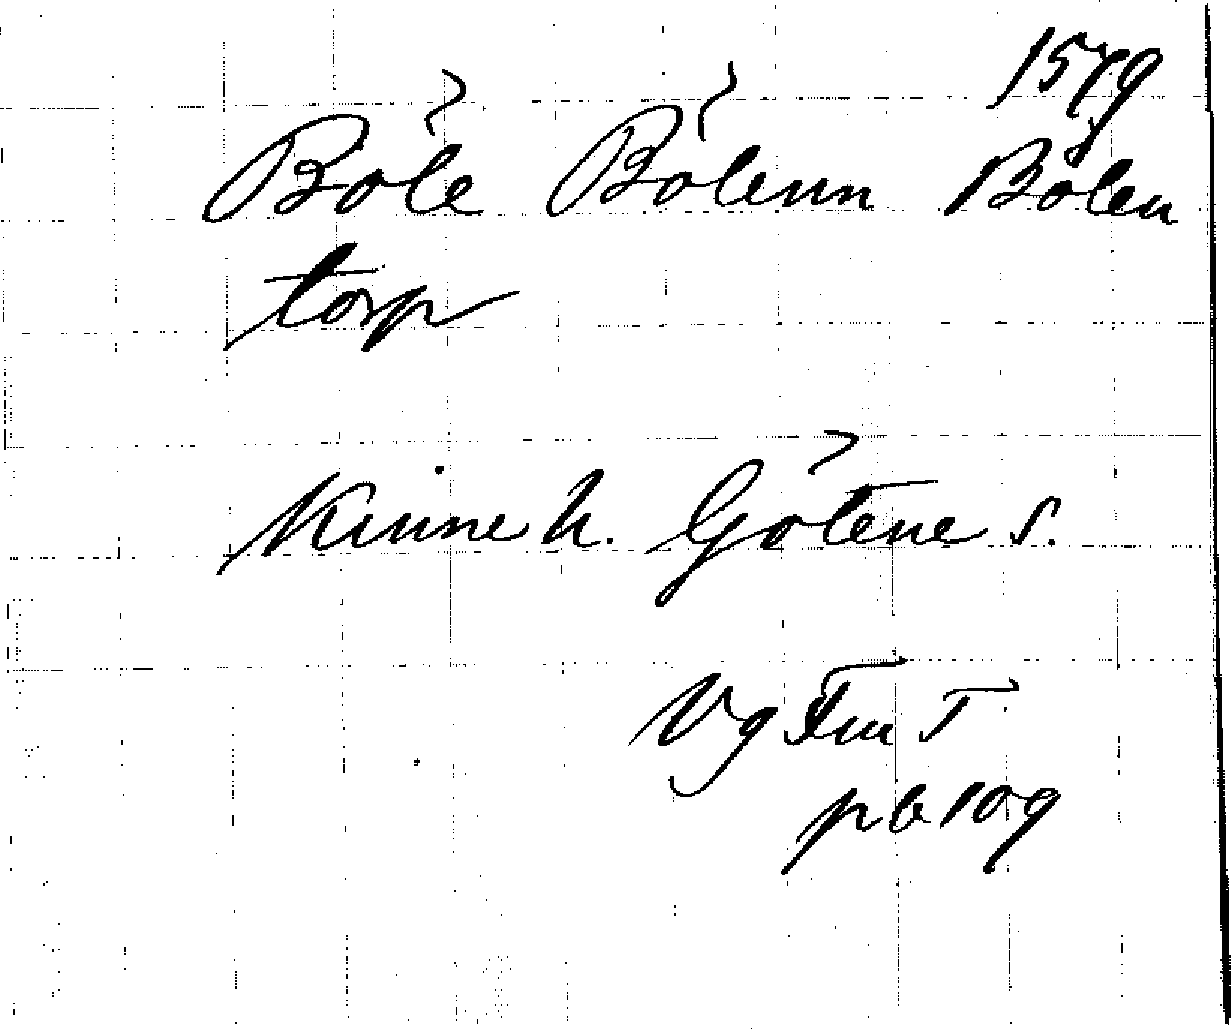 1579
Böle Bölenn Bölen
torp
Kinne h. Götene s.
Vg Fm T
pb 109